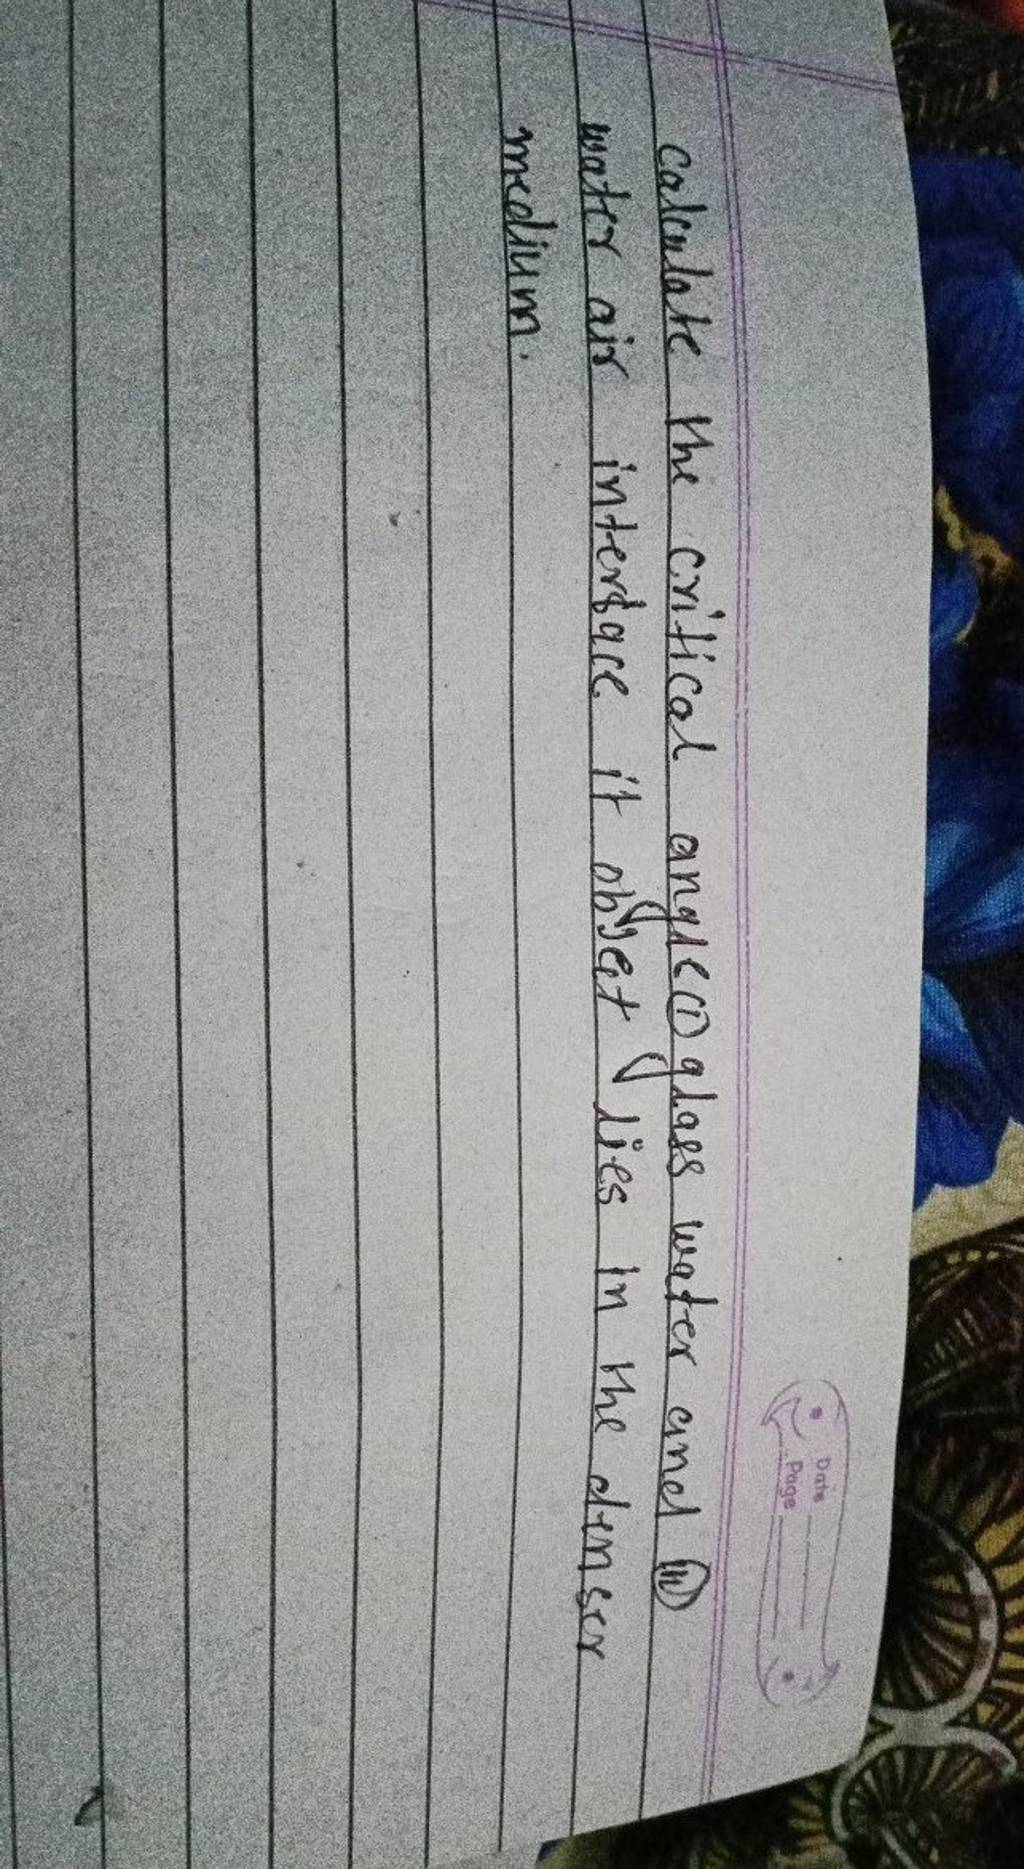 Date
Page
calculate the critical angle (i) glass water and (ii)
water air interface it object lies in the denser
medium.